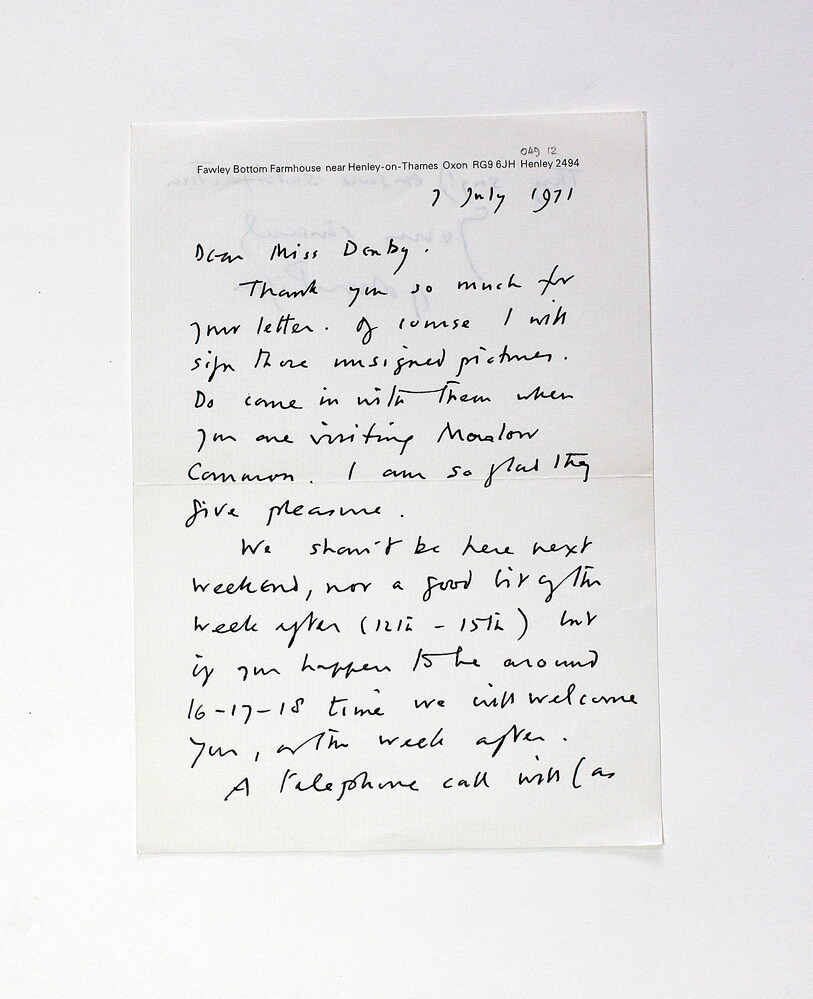 049 12
Fawley Bottom Farmhouse near Henley-on-Thames Oxon RG9 6JH Henley 2494
7 July 1971
Dear Miss Denby.
Thank you so much for
your letter. Of course I will
sign those unsigned pictures.
Do come in with them when
you are visiting Marlow
Common. I am so glad they
give pleasure.
We shan't be here next
weekend, nor a good bit of the
week after (12th - 15th) but
if you happen to be around
16-17-18 time we will welcome
you, or the week after.
A telephone call will (as